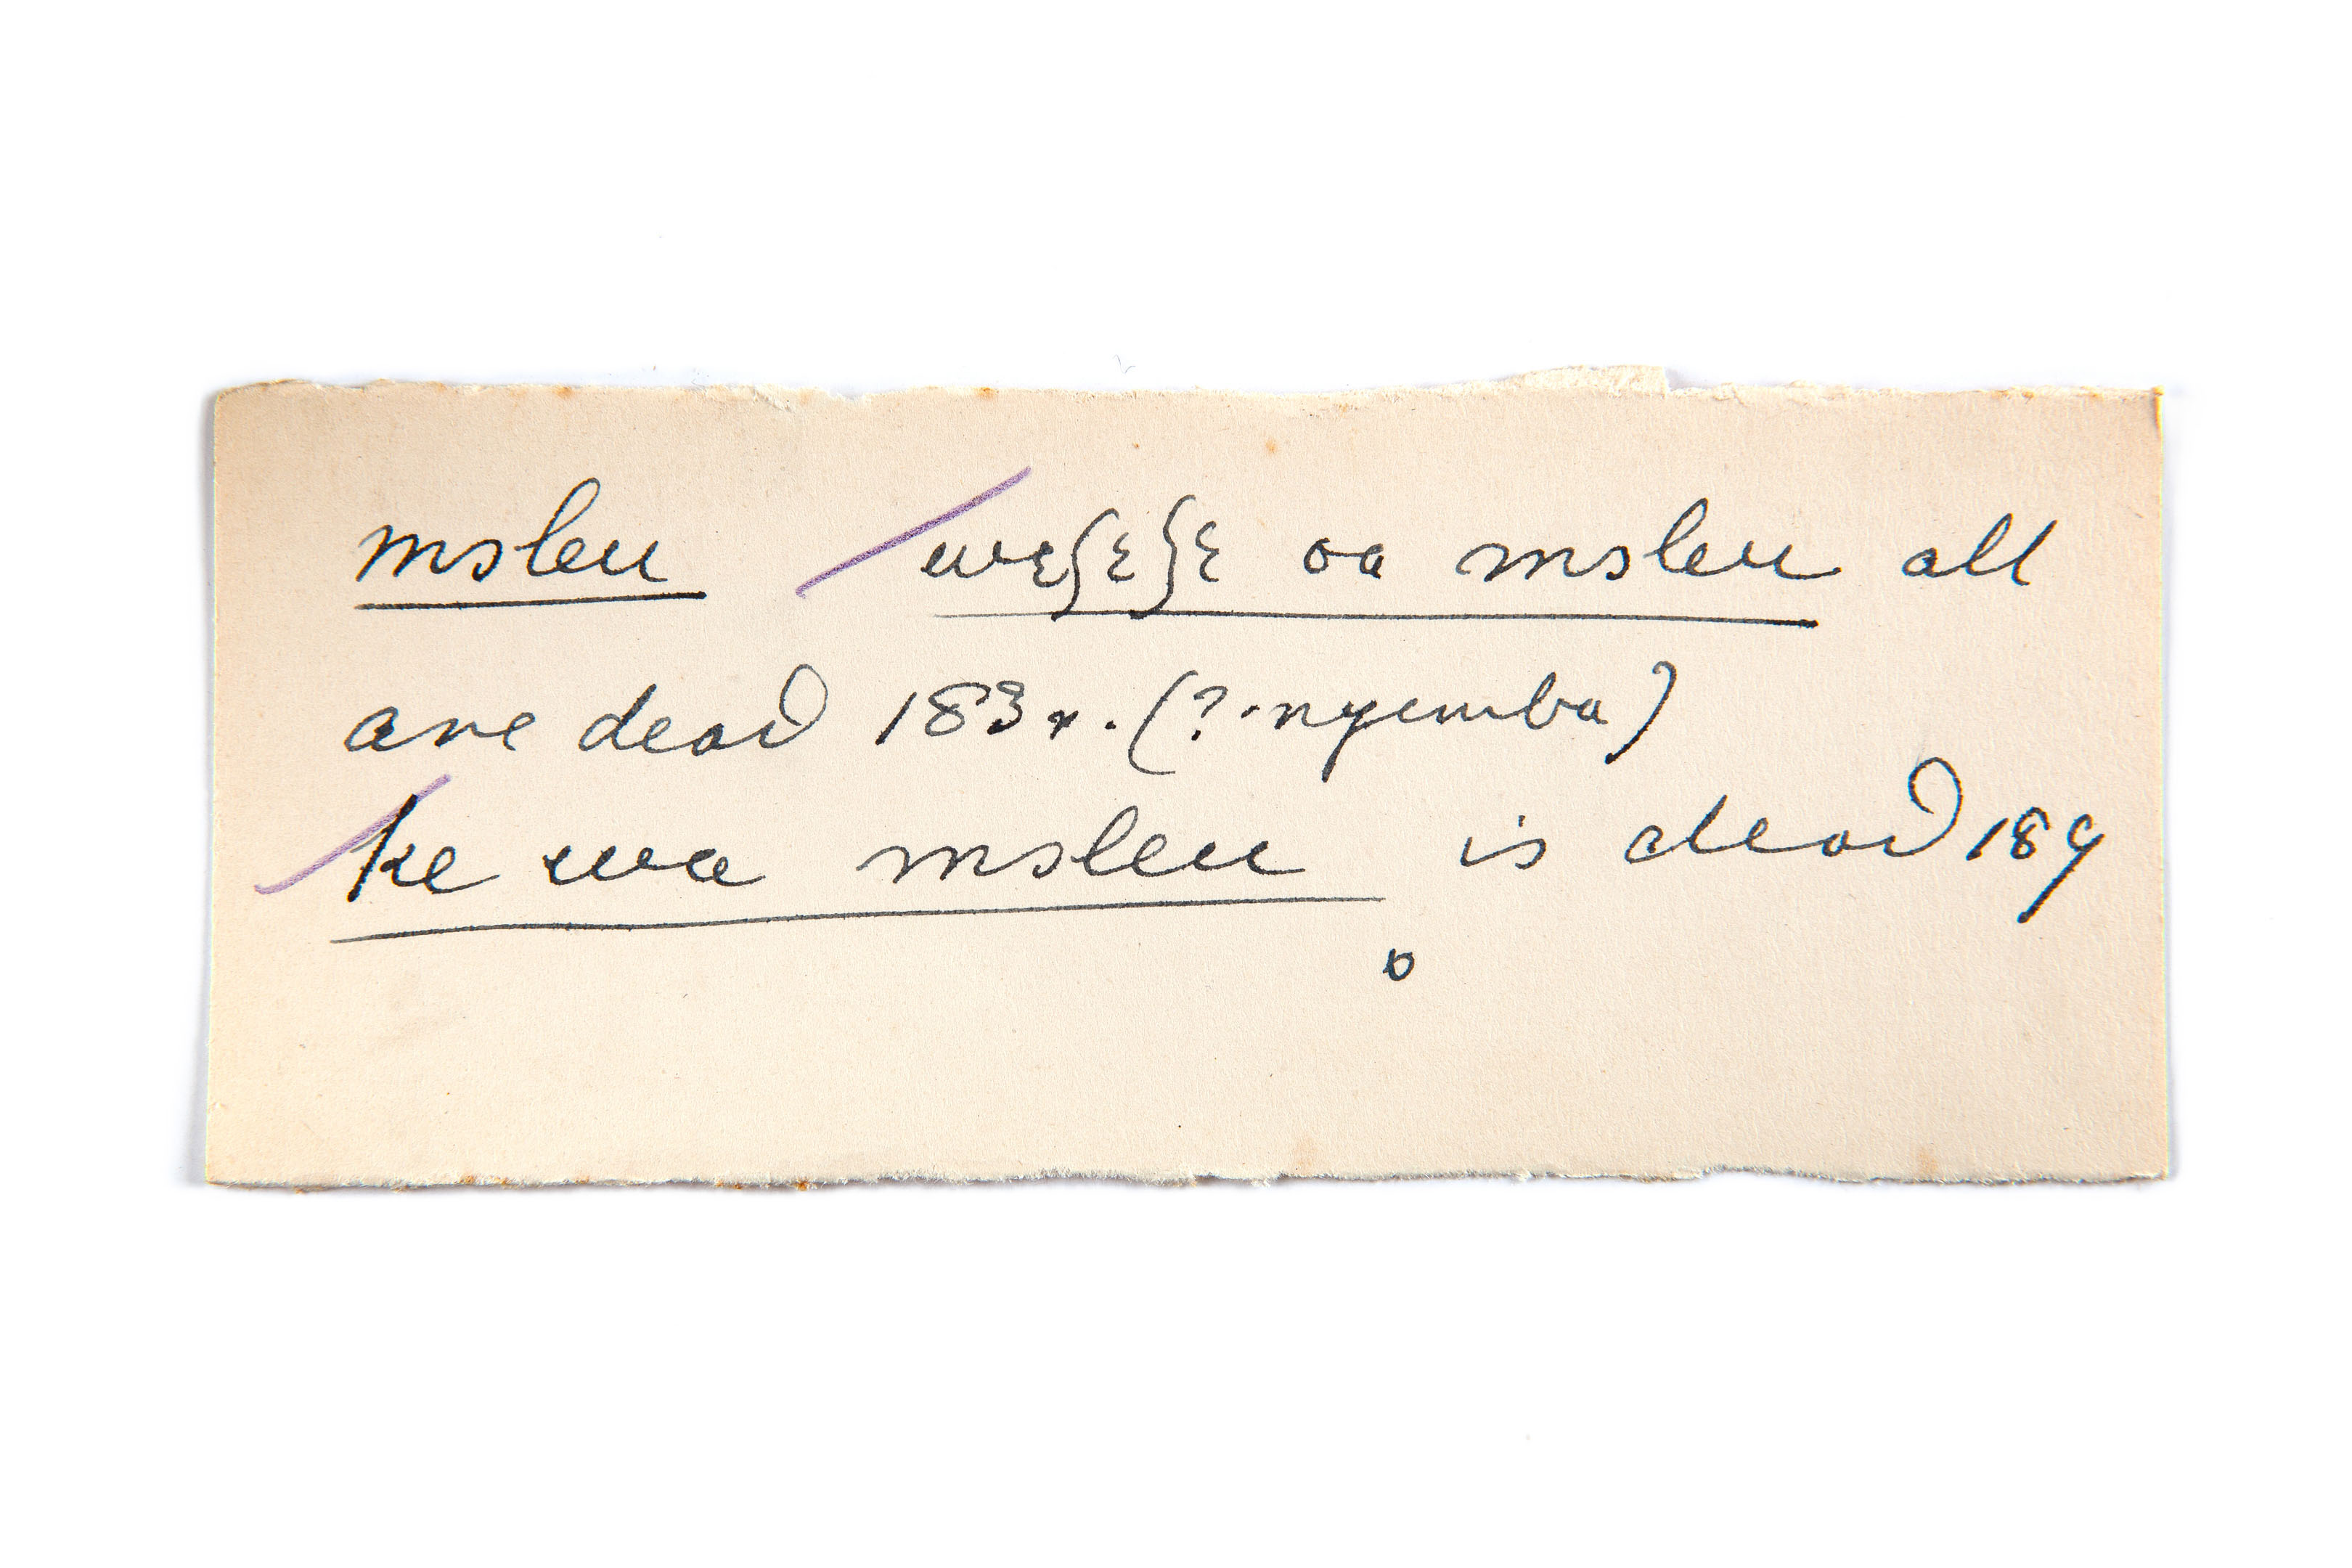 msleu weʃɛʃɛ oa msleu all
are dead 183v. (?·nyemba)
ke wa msleu is dead 189